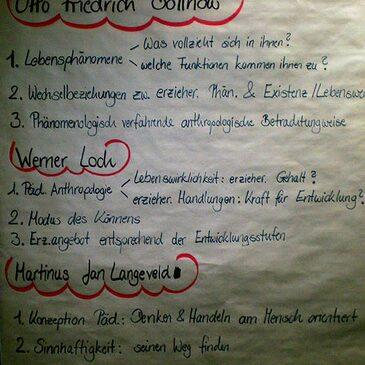 Otto Friedrich Bollnow
Was vollzieht sich in ihnen?
1. Lebensphänomene
welche Funktionen kommen ihnen zu?
2. Wechselbeziehungen zw. erzieher. Phän. & Existenz/Lebensw
3. Phänomenologisch verfahrende anthropologische Betrachtungsweise
Werner Loch
Lebenswirklichkeit: erzieher. Gehalt?
1. Päd. Anthropologie
erzieher. Handlungen: Kraft für Entwicklung?
2. Modus des Könnens
3. Erz.angebot entsprechend der Entwicklungsstufen
Martinus Jan Langeveld
1. Konzeption Päd.: Denken & Handeln am Mensch orientiert
2. Sinnhaftigkeit: seinen Weg finden